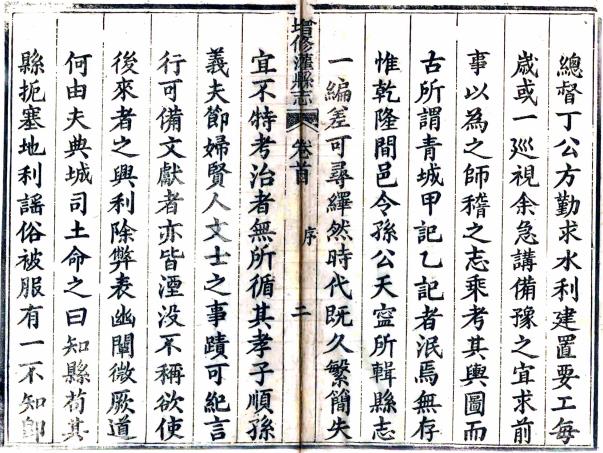 總督丁公方勤求水利建置要工每
嵗或一巡視余急講備豫之宜求前
事以為之師稽之志乘考其輿圖而
古所謂青城甲記乙記者泯焉無存
惟乾隆間邑令孫公天寍所輯縣志
一編差可尋繹然時代旣久繁簡失
增修灌縣志 卷首 序 二
宜不特考治者無所循其孝子順孫
義夫節婦賢人文士之事蹟可紀言
行可備文獻者亦皆湮没不稱欲使
後來者之興利除弊表幽闡微厥道
何由夫典城司土命之曰知縣苟其
縣扼塞地利謡俗被服有一不知卽